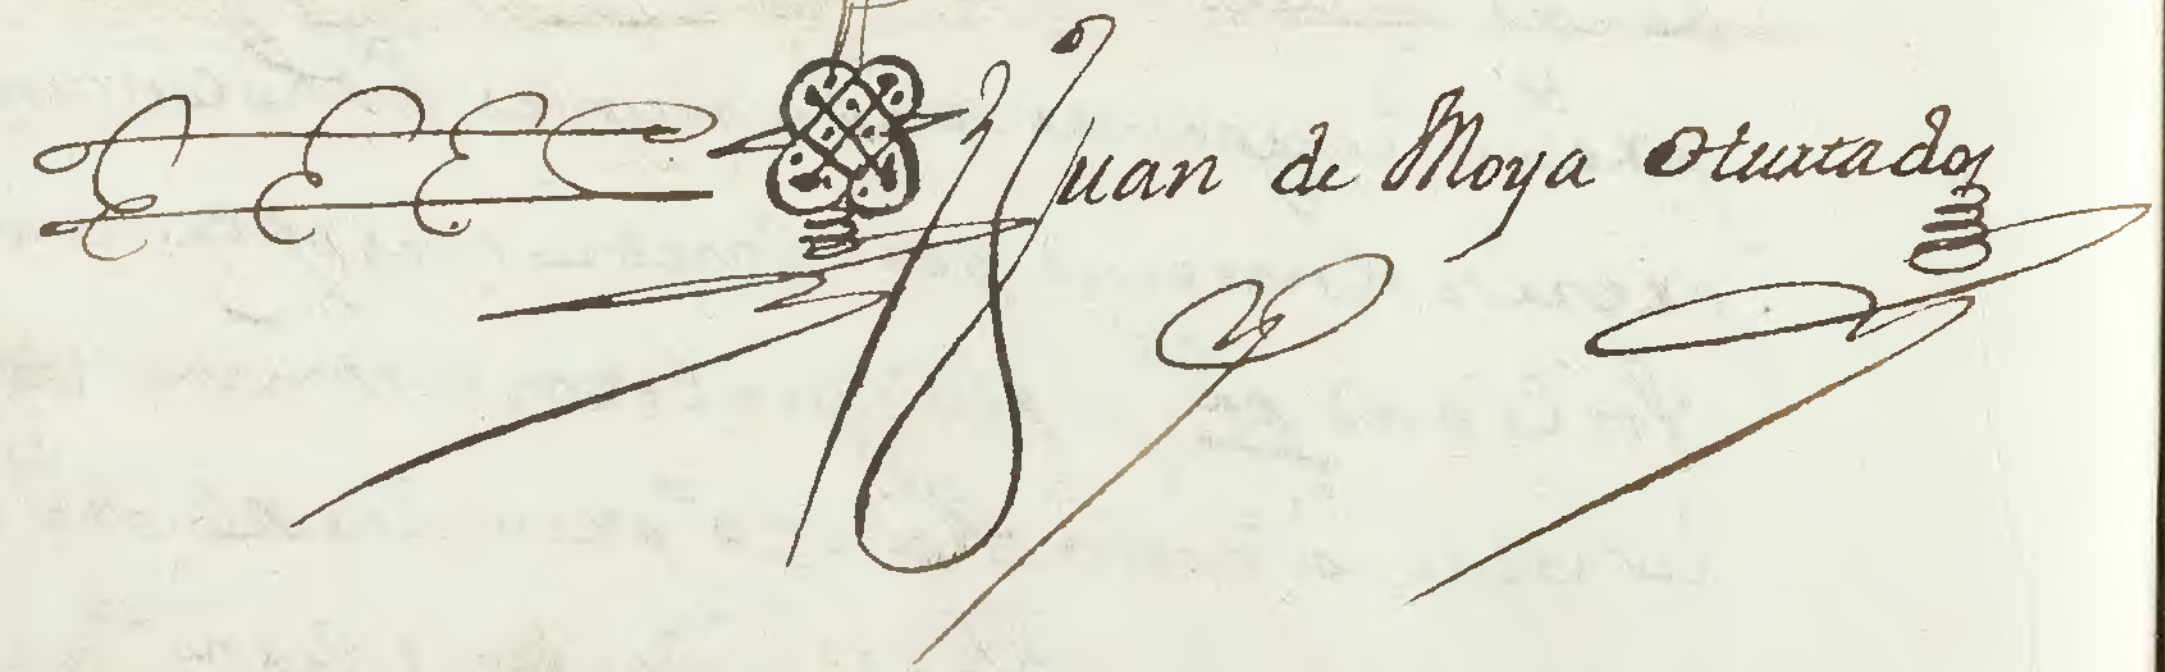 Juan de Moya Hurtado